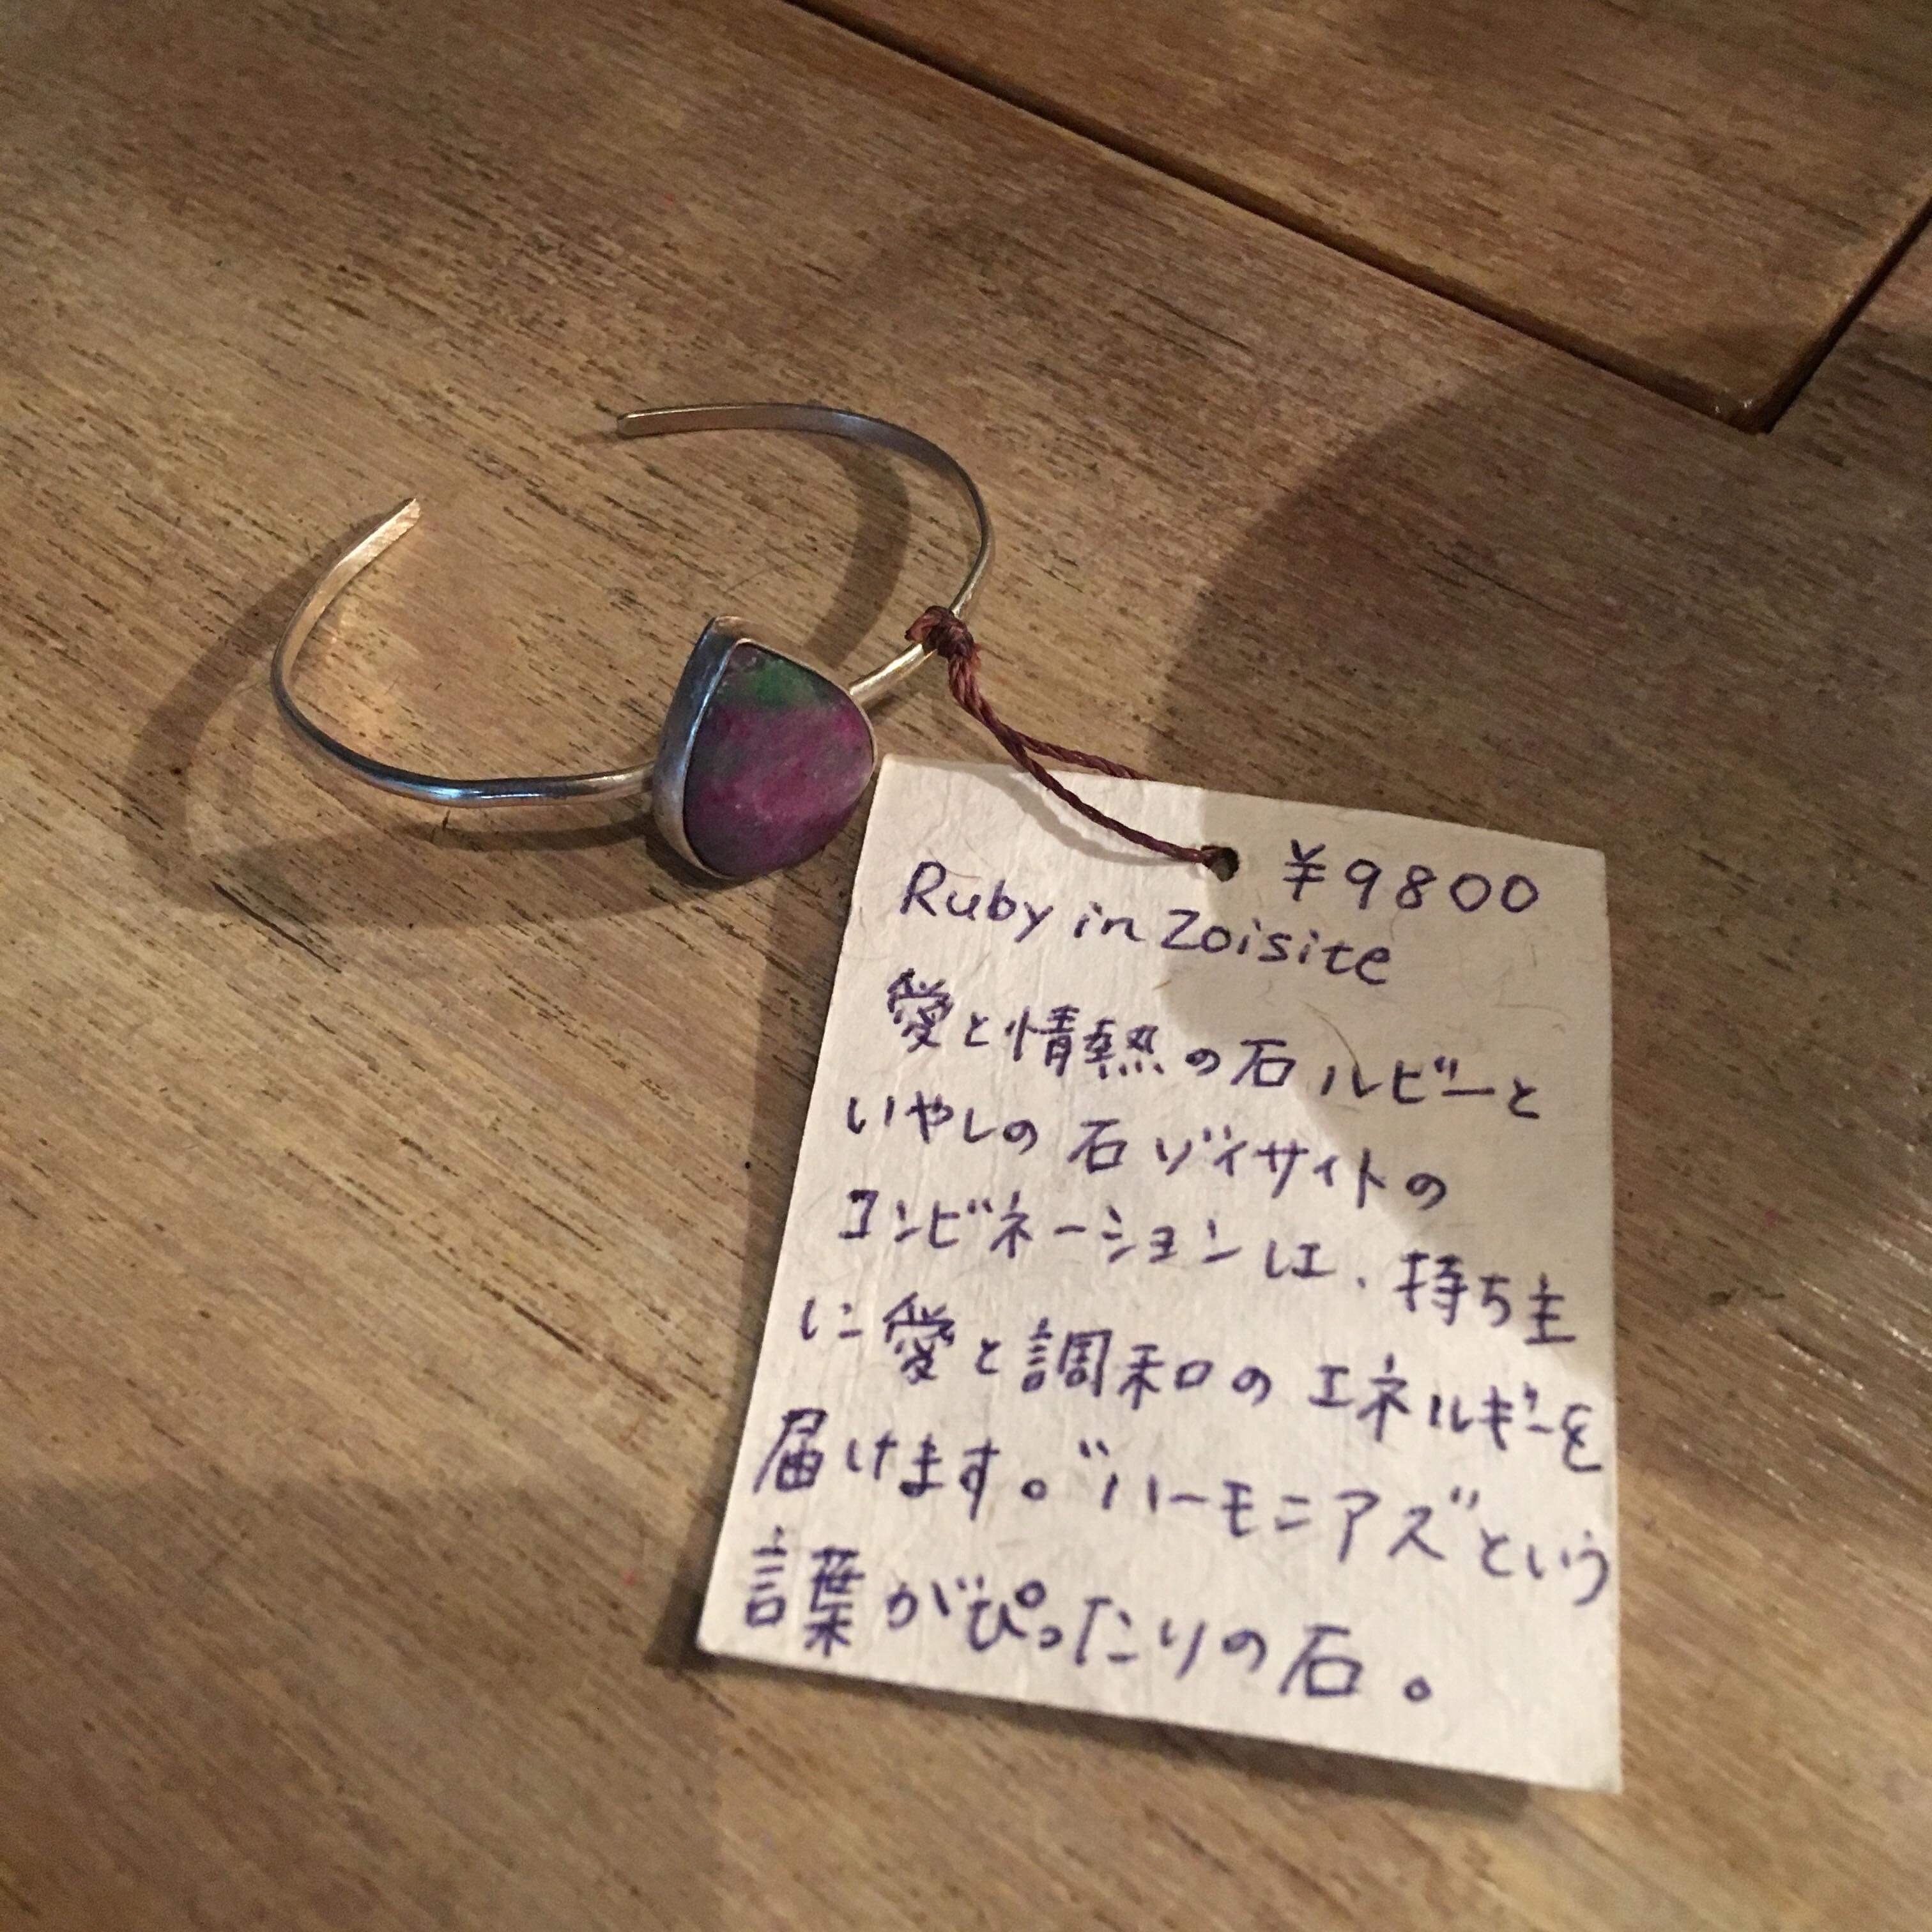 ¥9800
Ruby in Zoisite
愛と情熱の石ルビーと
いやしの石ゾイサイトの
コンビネーションは、持ち主
に愛と調和のエネルギーを
届けます。"ハーモニアズ"という
言葉がぴったりの石。